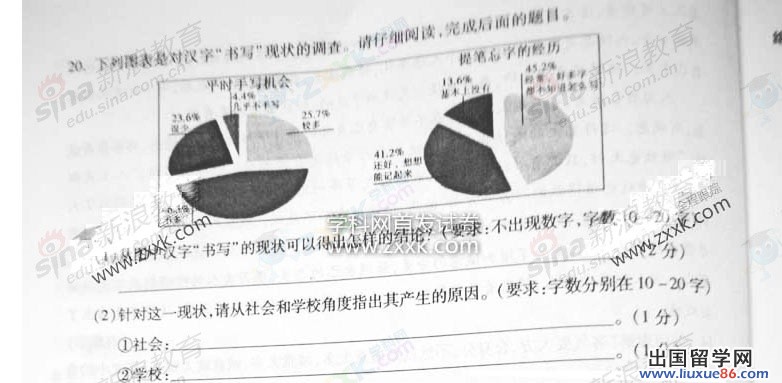 20. 下列图表是对汉字“书写”现状的调查。请仔细阅读,完成后面的题目。
平时手写机会
4.4%
几乎不手写
23.6%
很少
25.7%
较多
提笔忘字的经历
13.6%
基本上没有
45.2%
41.2%
还好,想想
能记起来
汉字“书写”的现状可以得出怎样的结论?(要求:不出现数字,字数10-20字)
(2分)
(2)针对这一现状,请从社会和学校角度指出其产生的原因。(要求:字数分别在10-20字)
①社会: 。(1分)
②学校:
sina新浪教育
edu.sina.com.cn
学科网首发试卷
www.zxxk.com
出国留学网
www.liuxue86.com